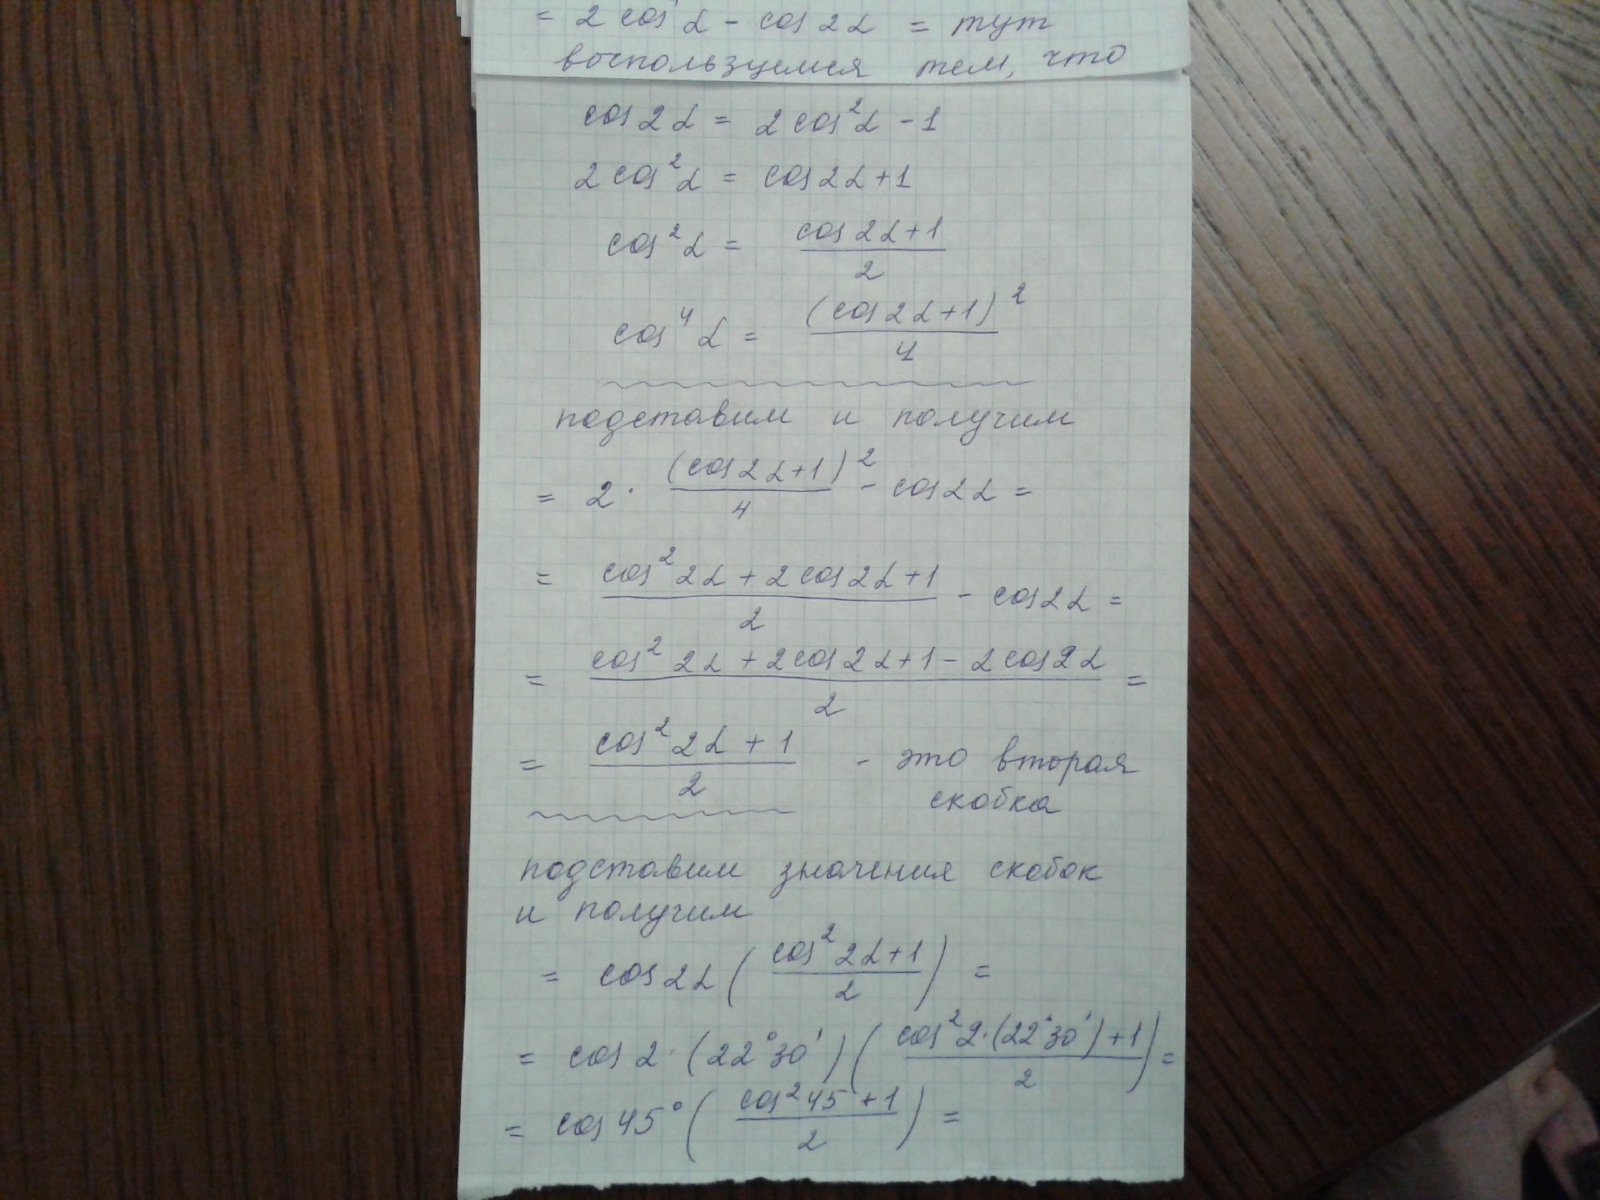 = 2 cos⁴ α - cos 2α = тут
воспользуемся тем, что
cos 2α = 2 cos² α - 1
2 cos² α = cos 2α + 1
cos² α = (cos 2α + 1) / 2
cos⁴ α = (cos 2α + 1)² / 4
подставим и получим
= 2 · (cos 2α + 1)² / 4 - cos 2α =
= (cos² 2α + 2 cos 2α + 1) / 2 - cos 2α =
= (cos² 2α + 2 cos 2α + 1 - 2 cos 2α) / 2 =
= (cos² 2α + 1) / 2 - это вторая
скобка
подставим значения скобок
и получим
= cos 2α ((cos² 2α + 1) / 2) =
= cos 2 · (22°30') ((cos² 2·(22°30') + 1) / 2) =
= cos 45° ((cos² 45 + 1) / 2) =